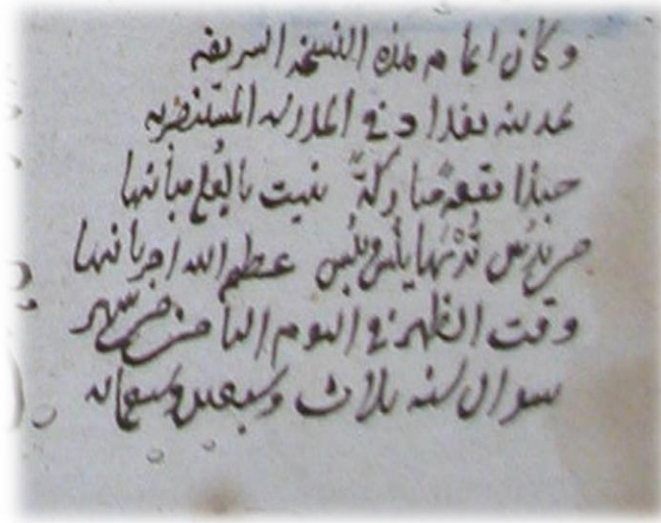 وكان اتمام هذه النسخة الشريفة
بمدينة بغداد في المدرسة المستنصرية
حبذا بقعةً مباركةً بنيت بالعلم مبانيها
عظم الله اجر بانيها
وقت الظهر في اليوم الثامن من شهر
شوال سنه ثلاث وسبعين وسبعمائه